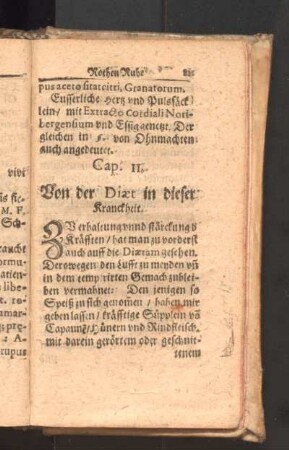 Rothen Ruhr
pus aceto sitat citri, Granatorum.
Eusserliche Hertz vnd Pulssäck
lein/ mit Extracto Cordiali Nori-
bergensium vnd Essig genetzt. Der
gleichen in von Ohnmachten
auch angedeutet.
Cap. II.
Von der Diæt in dieser
Kranckheit.
ZVerhaltung vnnd stärckung d
Kräfften/ hat man zu vorderst
auch auff die Diætam gesehen.
Derowegen den Lufft zu meyden vñ
in dem temperirten Gemach zublei-
ben vermahnet: Den jenigen so
Speiß zu sich genomen/ haben wir
geben lassen/ kräfftige Süpplein võ
Capaunẽ/ Hünern vnd Rindfleisch,
mit darein geröttem oder geschnit-
tenem
vivi
M. F.
Sch-
raucht
ormu-
atien-
libet.
ro-
amarisi
præ-
A-
rupus